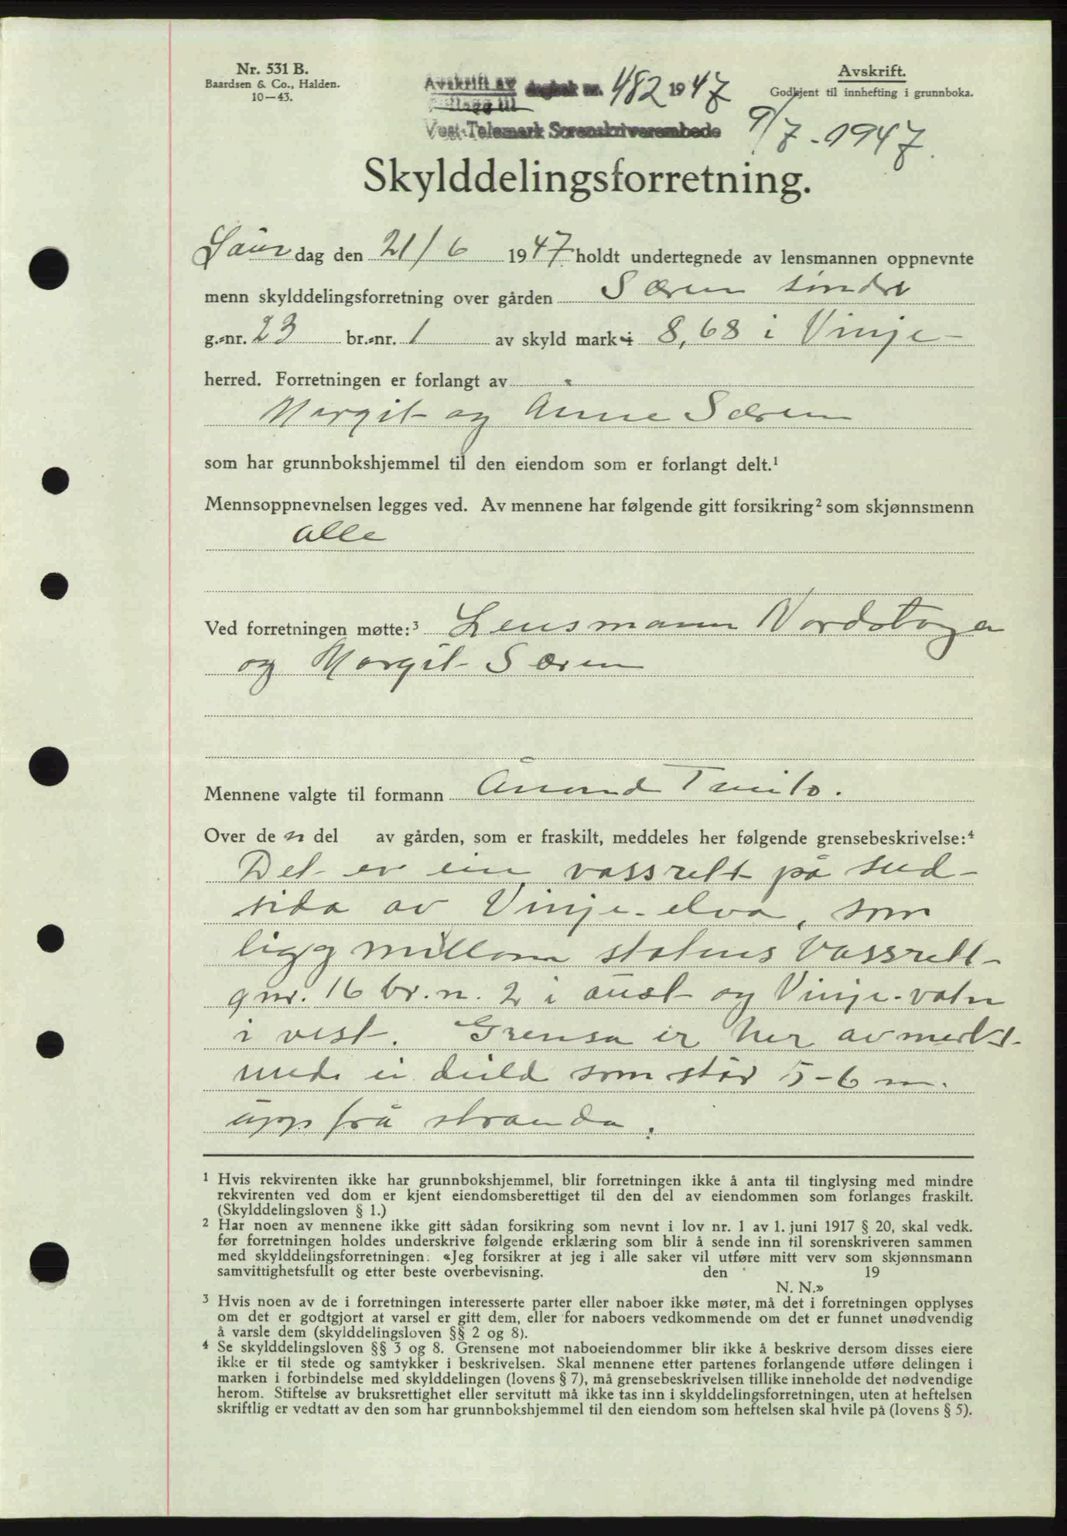 Nr. 531 B.
Baardsen & Co., Halden.
10—43.
Avskrift av dagbok nr. 482 1947
Vest-Telemark Sorenskriverembede
Avskrift.
Godkjent til innhefting i grunnboka.
9/7-1947.
Skylddelingsforretning.
Laurdag den 21/6 1947 holdt undertegnede av lensmannen oppnevnte
menn skylddelingsforretning over gården Særen søndre
g.-nr. 23 br.-nr. 1 av skyld mark 8,68 i Vinje-
herred. Forretningen er forlangt av
Margit og Anne Særen
som har grunnbokshjemmel til den eiendom som er forlangt delt.¹
Mennsoppnevnelsen legges ved. Av mennene har følgende gitt forsikring² som skjønnsmenn
alle
Ved forretningen møtte:³ Lensmann Nordstoga
og Margit Særen
Mennene valgte til formann Åmund Tveito.
Over den del av gården, som er fraskilt, meddeles her følgende grensebeskrivelse:⁴
Det er ein vassrett på sud-
sida av Vinje-elva, som
ligg millom statens vassrett
gnr. 16 br.n. 2 i aust og Vinje-vatn
i vest. Grensa er her avmerkt
med ei deild som står 5-6 m.
upp frå stranda.
¹ Hvis rekvirenten ikke har grunnbokshjemmel, blir forretningen ikke å anta til tinglysing med mindre
rekvirenten ved dom er kjent eiendomsberettiget til den del av eiendommen som forlanges fraskilt.
(Skylddelingsloven § 1.)
² Har noen av mennene ikke gitt sådan forsikring som nevnt i lov nr. 1 av 1. juni 1917 § 20, skal vedk.
før forretningen holdes underskrive følgende erklæring som blir å sende inn til sorenskriveren sammen
med skylddelingsforretningen: «Jeg forsikrer at jeg i alle saker vil utføre mitt verv som skjønnsmann
samvittighetsfullt og etter beste overbevisning. den 19
N. N.»
³ Hvis noen av de i forretningen interesserte parter eller naboer ikke møter, må det i forretningen opplyses
om det er godtgjort at varsel er gitt dem, eller for naboers vedkommende om det er funnet unødvendig
å varsle dem (skylddelingsloven §§ 2 og 8).
⁴ Se skylddelingsloven §§ 3 og 8. Grensene mot naboeiendommer blir ikke å beskrive dersom disses eiere
ikke er til stede og samtykker i beskrivelsen. Skal mennene etter partenes forlangende utføre delingen i
marken i forbindelse med skylddelingen (lovens § 7), må grensebeskrivelsen tillike inneholde det nødvendige
herom. Stiftelse av bruksrettighet eller servitutt må ikke tas inn i skylddelingsforretningen, uten at heftelsen
skriftlig er vedtatt av den som har grunnbokshjemmel til den eiendom som heftelsen skal hvile på (lovens § 5).